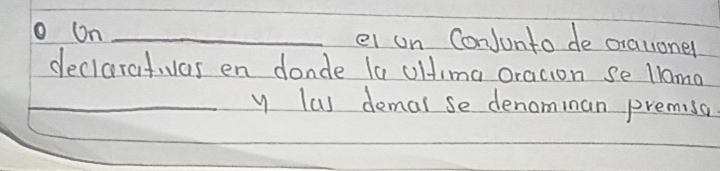 o Un ____________ es un Conjunto de oraciones
declarativas en donde la ultima oracion se llama
____________ y las demas se denominan premisa.